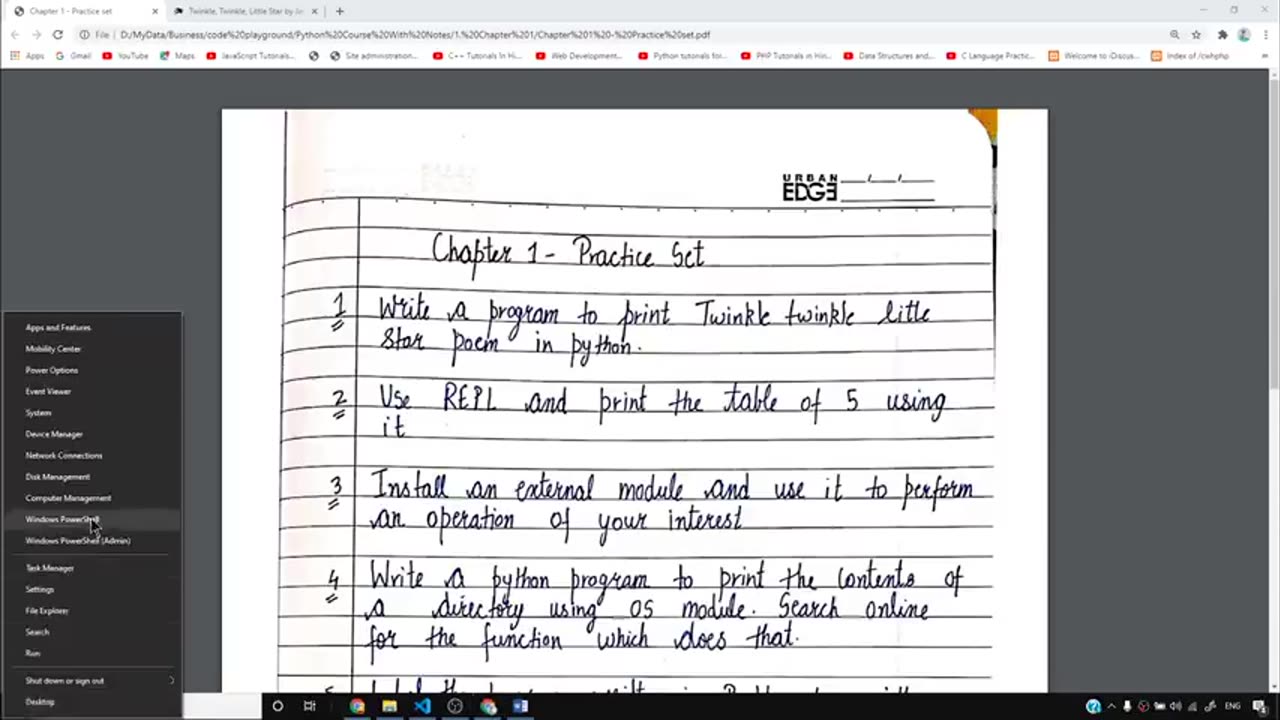 Chapter 1 - Practice set
Twinkle, Twinkle, Little Star by Ja
File
D:/MyData/Business/code%20playground/Python%20Course%20With%20Notes/1.%20Chapter%201/Chapter%201%20-%20Practice%20set.pdf
Apps
Gmail
YouTube
Maps
JavaScript Tutorials...
Site administration...
C++ Tutorials In Hi...
Web Development...
Python tutorials for...
PHP Tutorials in Hin...
Data Structures and...
C Language Practic...
Welcome to iDiscus...
Index of /cwhphp
URBAN
EDGE
Chapter 1 - Practice Set
1 Write a program to print Twinkle twinkle little
star poem in python.
2 Use REPL and print the table of 5 using
it
3 Install an external module and use it to perform
an operation of your interest
4 Write a python program to print the contents of
a directory using os module. Search online
for the function which does that.
Apps and Features
Mobility Center
Power Options
Event Viewer
System
Device Manager
Network Connections
Disk Management
Computer Management
Windows PowerShell
Windows PowerShell (Admin)
Task Manager
Settings
File Explorer
Search
Run
Shut down or sign out
Desktop
ENG